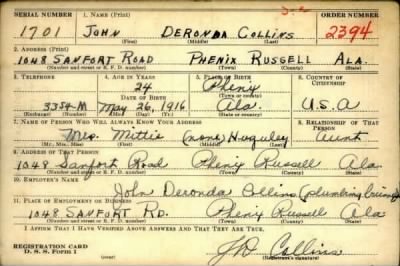 SERIAL NUMBER 1. NAME (Print) ORDER NUMBER
1701 JOHN DERONDA COLLINS 2394
(First) (Middle) (Last)
2. ADDRESS (Print)
1048 SANFORT ROAD PHENIX RUSSELL ALA.
(Number and street or R. F. D. number) (Town) (County) (State)
3. TELEPHONE 4. AGE IN YEARS 5. PLACE OF BIRTH 6. COUNTRY OF CITIZENSHIP
24 Phenix
DATE OF BIRTH (Town or county)
3354-M May 26, 1916 Ala. U.S.A
(Exchange) (Number) (Mo.) (Day) (Yr.) (State or country)
7. NAME OF PERSON WHO WILL ALWAYS KNOW YOUR ADDRESS 8. RELATIONSHIP OF THAT PERSON
Mrs. Mittie (none) Huguley Aunt
(Mr., Mrs., Miss) (First) (Middle) (Last)
9. ADDRESS OF THAT PERSON
1048 Sanfort Road Phenix Russell Ala
(Number and street or R. F. D. number) (Town) (County) (State)
10. EMPLOYER'S NAME
John Deronda Collins (plumbing
11. PLACE OF EMPLOYMENT OR BUSINESS
1048 SANFORT RD. Phenix Russell Ala
(Number and street or R. F. D. number) (Town) (County) (State)
I AFFIRM THAT I HAVE VERIFIED ABOVE ANSWERS AND THAT THEY ARE TRUE.
REGISTRATION CARD
D. S. S. Form 1 J D Collins
(Registrant's signature)